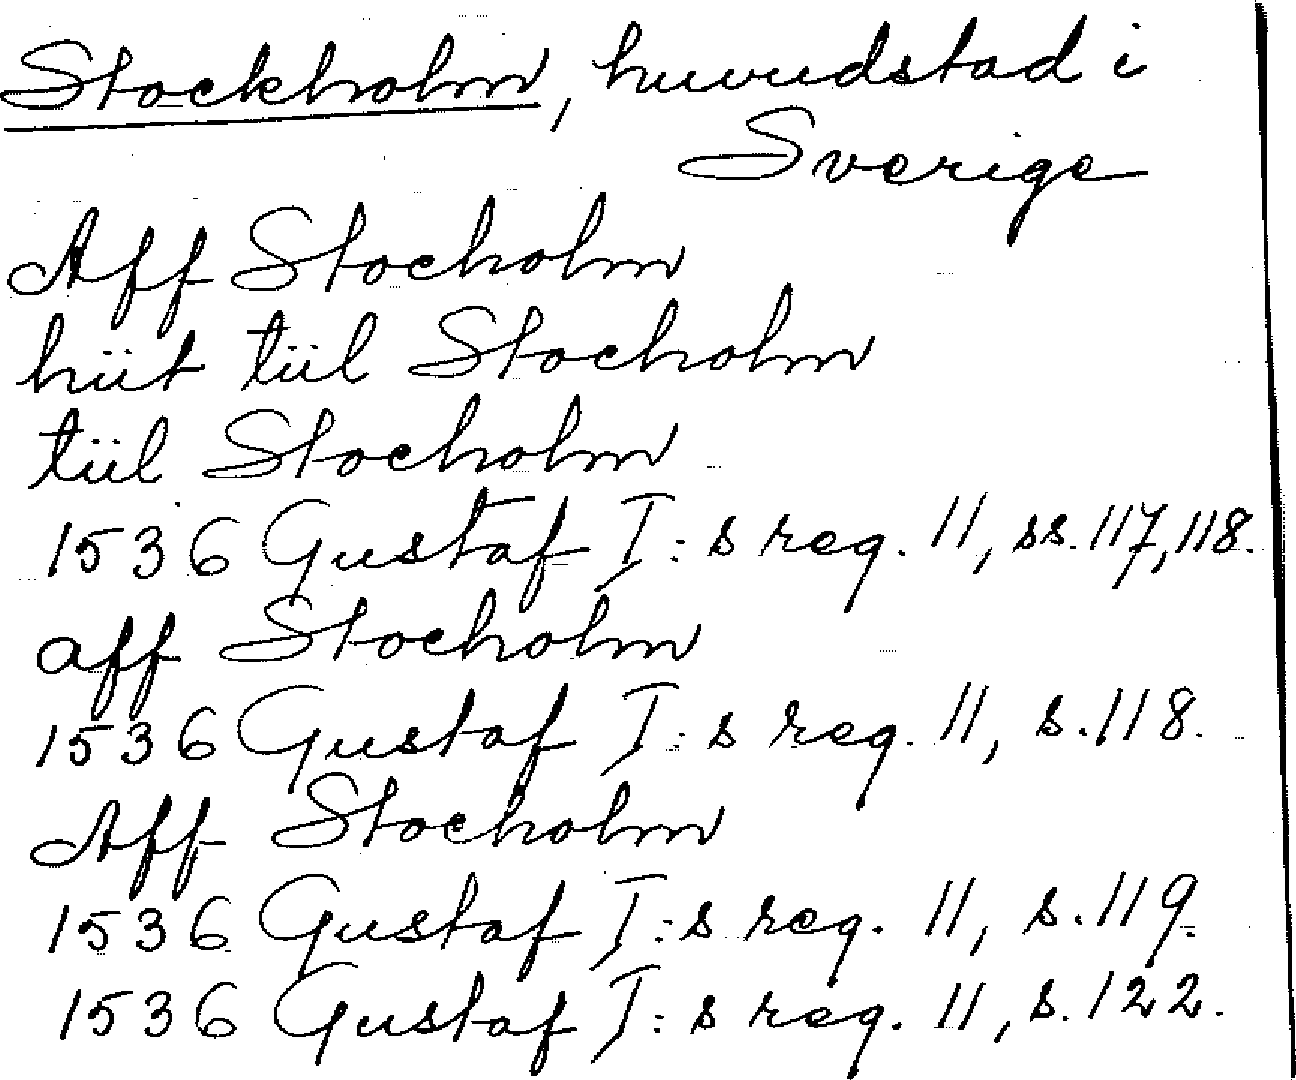 Stockholm, huvudstad i
Sverige
Aff Stocholm
hiit tiil Stocholm
tiil Stocholm
1536 Gustaf I:s reg. 11, ss. 117, 118.
aff Stocholm
1536 Gustaf I:s reg. 11, s. 118.
Aff Stocholm
1536 Gustaf I:s reg. 11, s. 119.
1536 Gustaf I:s reg. 11, s. 122.